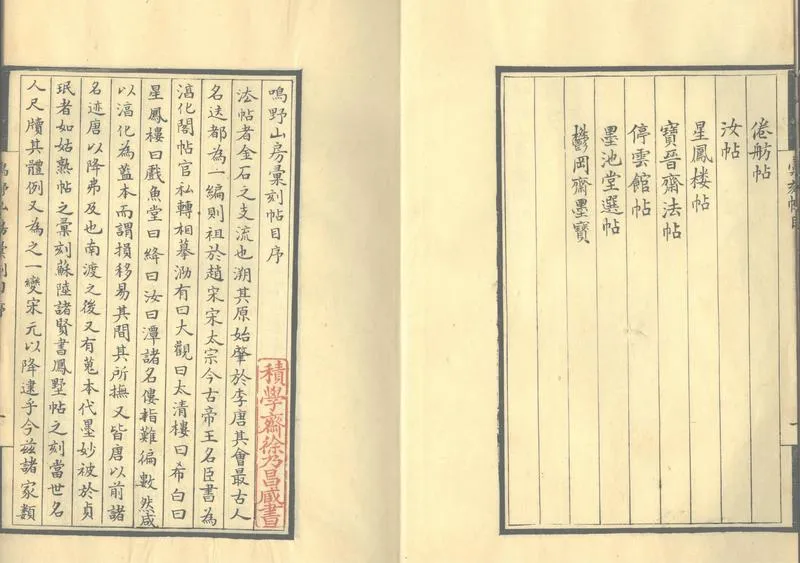 倦舫帖
汝帖
星鳳楼帖
寶晉齋法帖
停雲館帖
墨池堂選帖
鬱岡齋墨寶
鳴野山房彙刻帖目序
法帖者金石之支流也溯其原始肇於李唐其會最古人
名迭都為一編則祖於趙宋宋太宗今古帝王名臣書為
湻化閣帖官私轉相摹泐有曰大觀曰太清樓曰希白曰
星鳳樓曰戲魚堂曰絳曰汝曰潭諸名僂指難徧數然咸
以湻化為藍本而謂損移易其間其所撫又皆唐以前諸
名迹唐以降弗及也南渡之後又有蒐本代墨妙被於貞
珉者如姑熟帖之彙刻蘇陸諸賢書鳳墅帖之刻當世名
人尺牘其體例又為之一變宋元以降逮乎今兹諸家類
積學齋徐乃昌臧書